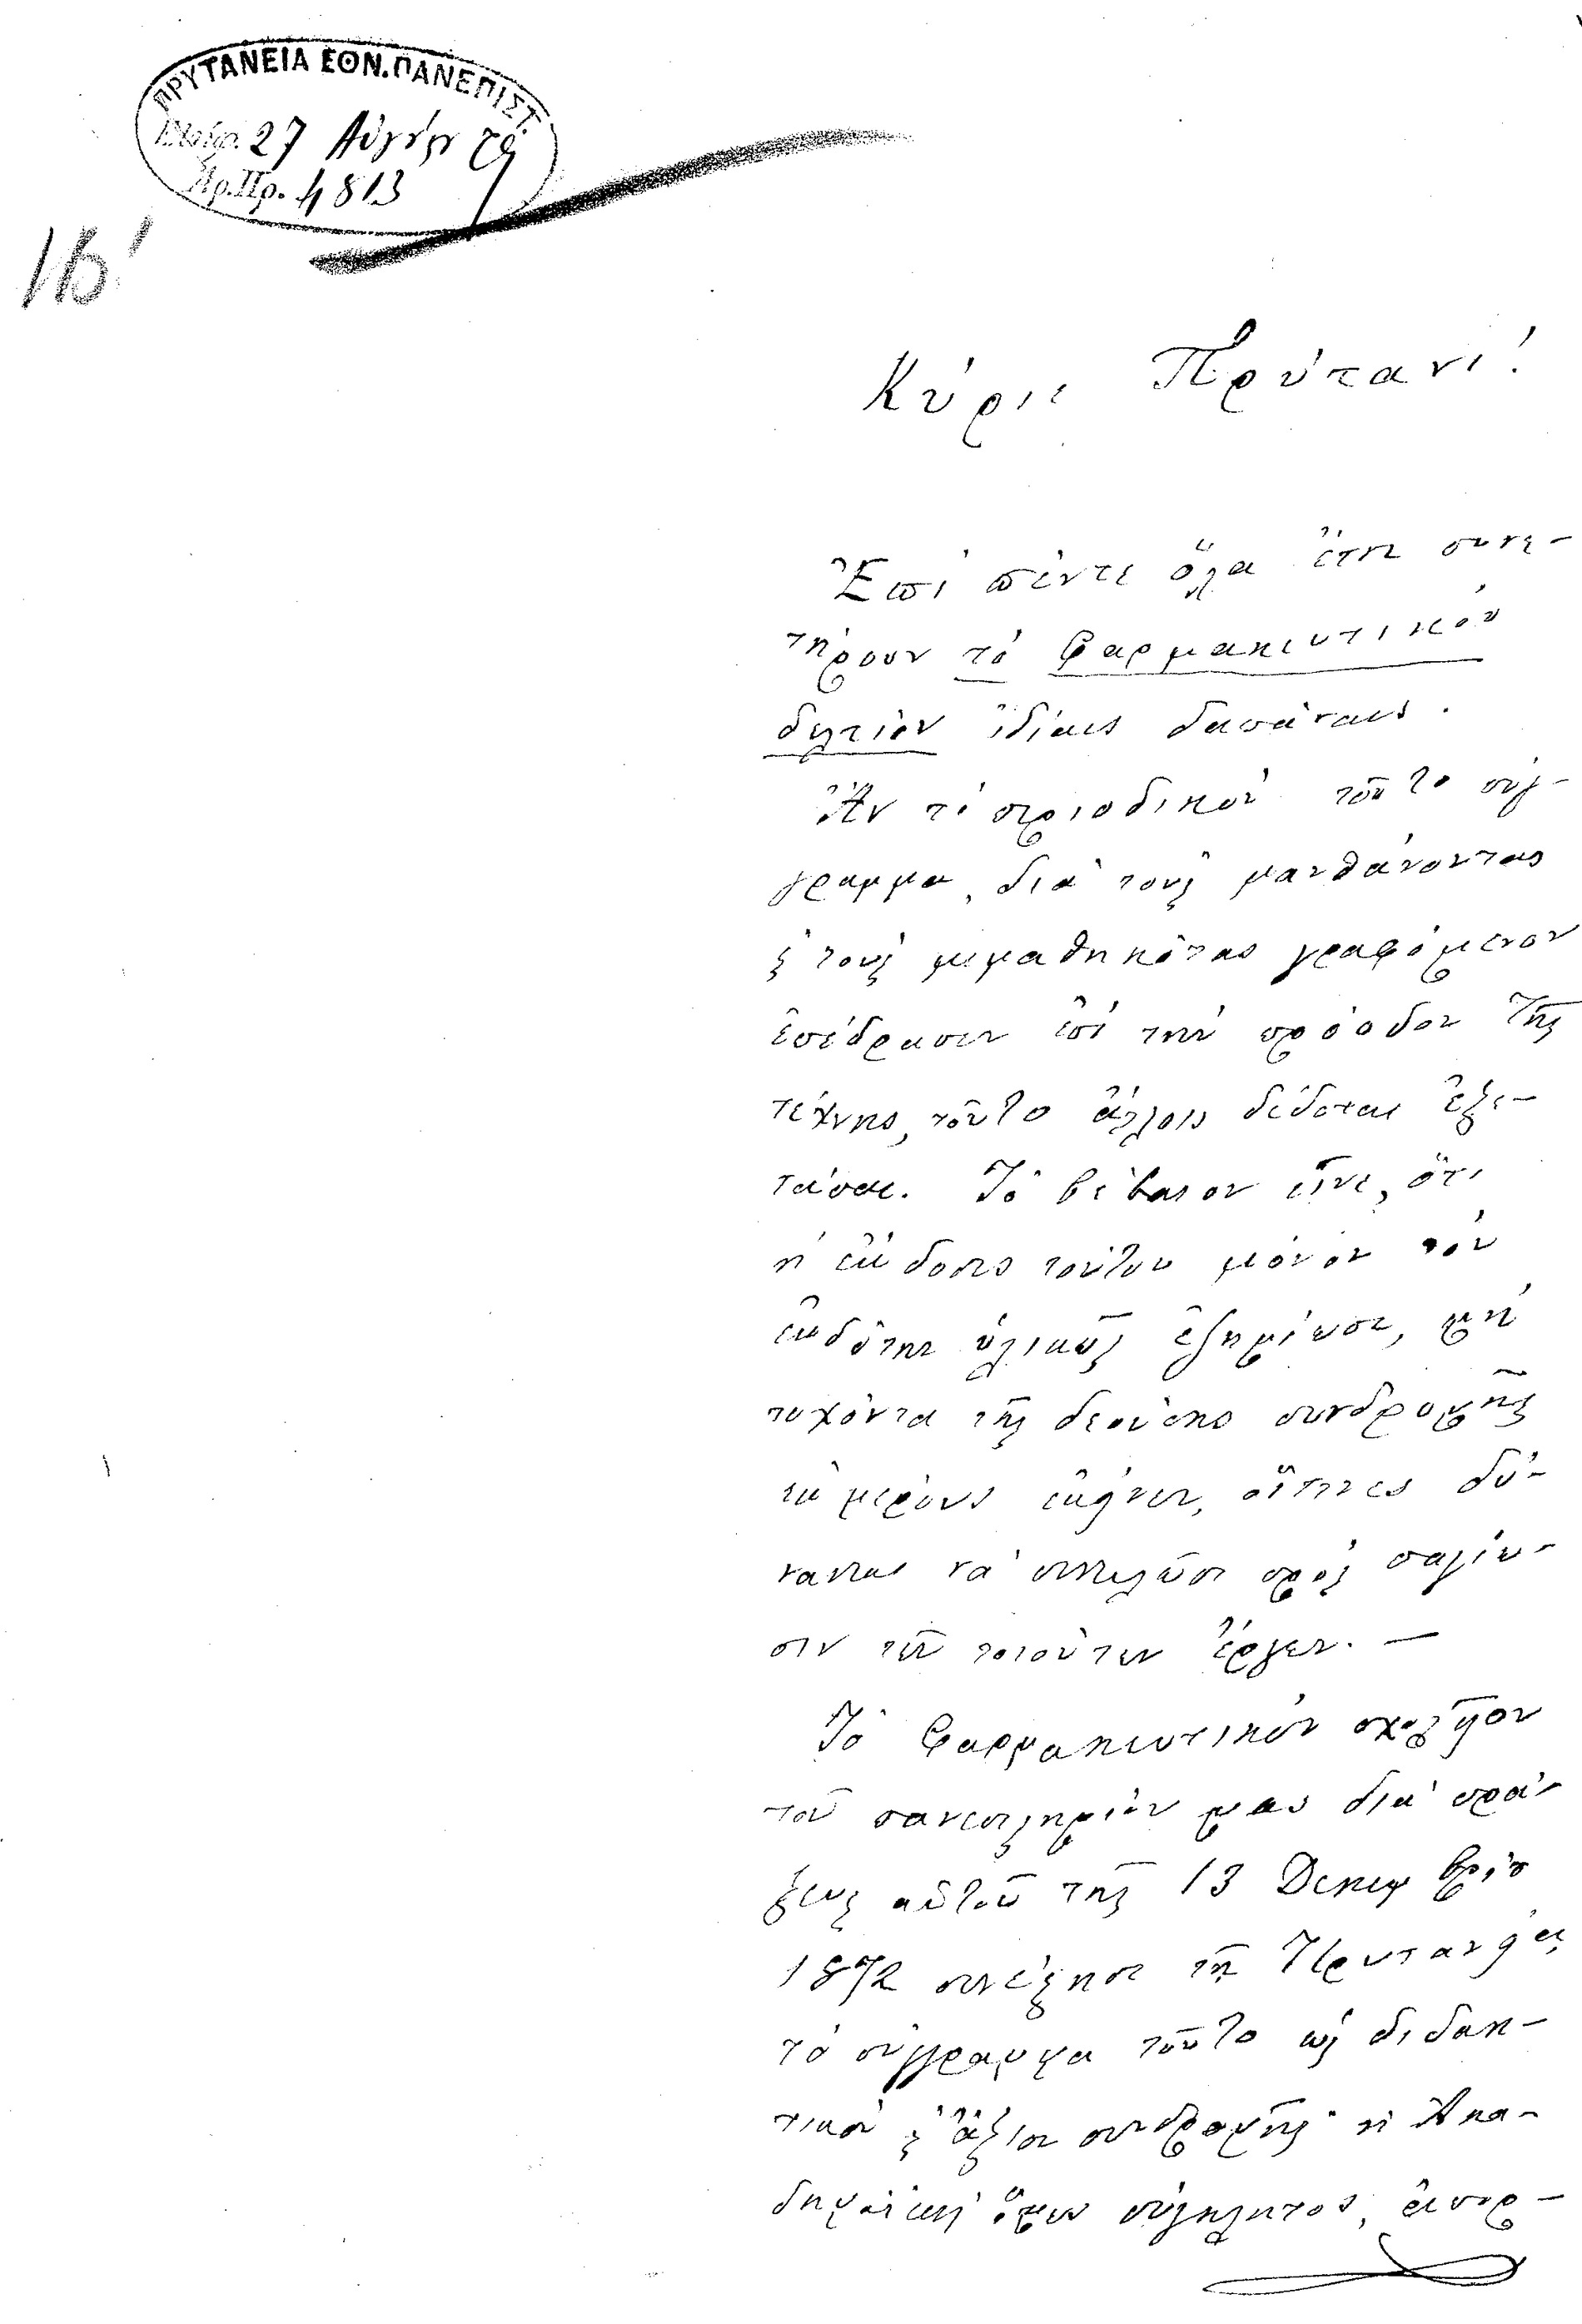 ΠΡΥΤΑΝΕΙΑ ΕΘΝ. ΠΑΝΕΠΙΣΤ.
27 Αὐγούστ
Ἀρ. Πρ. 4813
Κύριε Πρύτανι!
Ἐπὶ πέντε ὅλα ἔτη συνε-
τήρουν τὸ Φαρμακευτικὸν
δελτίον ἰδίαις δαπάναις.
Ἂν τὸ περιοδικὸν τοῦτο σύγ-
γραμμα, διὰ τοὺς μανθάνοντας
ϗ τοὺς μεμαθηκότας γραφόμενον
ἐπέδρασεν ἐπὶ τὴν πρόοδον τῆς
τέχνης, τοῦτο ἄλλοις δέδοται ἐξε-
τάσαι. Τὸ βέβαιον εἶνε, ὅτι
ἡ ἔκδοσις τούτου μόνον τὸν
ἐκδότην ὑλικῶς ἐζημίωσε, μὴ
τυχόντα τῆς δεούσης συνδρομῆς
ἐκ μέρους ἐκείνων, οἵτινες δύ-
νανται νὰ συντελῶσι πρὸς παγίω-
σιν τῶν τοιούτων ἔργων. —
Τὸ Φαρμακευτικὸν σχολεῖον
τοῦ πανεπιστημίου μας διὰ πρά-
ξεως αὐτοῦ τῆς 13 Δεκεμβρίου
1872 συνέστησε τῇ Πρυτανείᾳ
τὸ σύγγραμμα τοῦτο ὡς διδακ-
τικὸν ϗ ἄξιον συνδρομῆς· ἡ Ἀκα-
δημαϊκὴ ὅμως σύγκλητος,